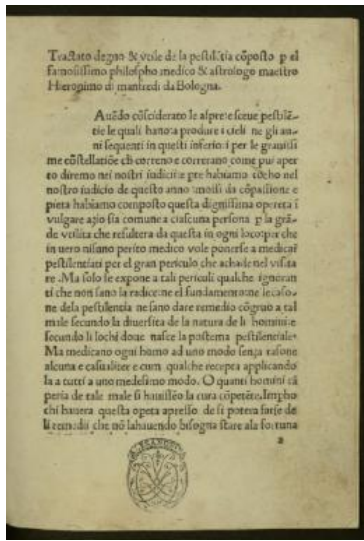 Tractato degno & vtile de la pestilẽtia cõposto p el
famosissimo philosopho medico & astrologo maestro
Hieronimo di manfredi da Bologna.
Auẽdo cõsiderato le aspre e seue pestilẽ-
tie le quali hano a produre i cieli ne gli an-
ni sequenti in questi inferiori per le grauissi
me cõstellatiõe ch correno e correrano come pui aper
to diremo nei nostri iudicii e pre habiamo
nostro iudicio de questo anno mossi da cõpassione e
pieta habiamo composto questa dignissima opereta i
vulgare azio sia comune a ciascuna persona p la grã-
de vtilita che resultera da questa in ogni loco: per che
in uero nisuno perito medico vole ponerse a medicar
pestilentiati per el gran periculo che achade nel visita
re. Ma solo se expone a tali periculi qualche ignoran
ti che non sano la radice ne el fundamento: ne le caso-
ne dela pestilentia ne sano dare remedio cõgruo a tal
male secundo la diuersita de la natura de li homini: e
secundo li lochi doue nasce la postema pestilentiale.
Ma medicano ogni homo ad uno modo senza rasone
alcuna e casualiter e cum qualche recepta applicando
la a tutti a uno medesimo modo. O quanti homini cã
peria de tale male si hauissẽo la cura cõpetẽte. Impho
chi hauera questa opera apresso de si potera farse de
li remedii che nõ la hauendo bisogna stare ala fortuna
a